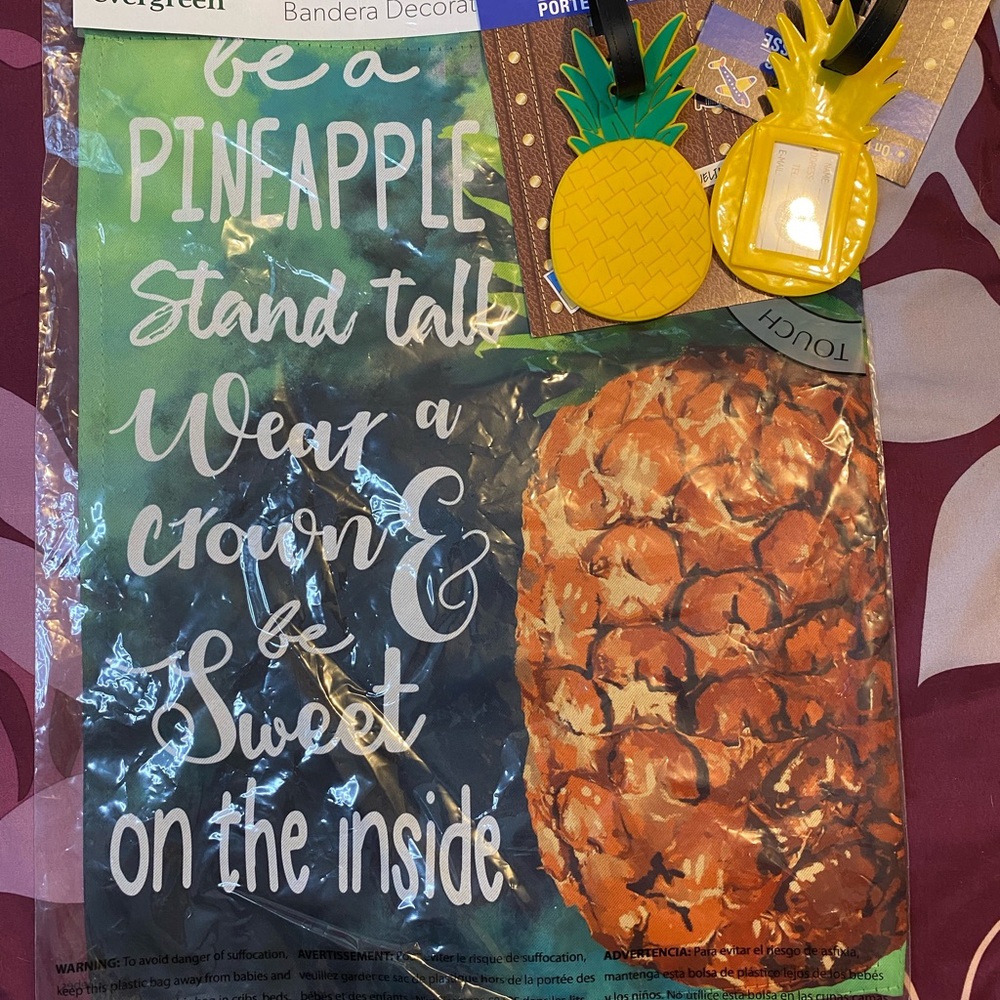 evergreen
Bandera Decorat
PORTE
be a
PINEAPPLE
Stand tall
Wear a
crown &
be
Sweet
on the inside
TOUCH
WARNING: To avoid danger of suffocation,
keep this plastic bag away from babies and
AVERTISSEMENT: Pour éviter le risque de suffocation,
veuillez garder ce sac de plastique hors de la portée des
bébés et des enfants
ADVERTENCIA: Para evitar el riesgo de asfixia,
mantenga esta bolsa de plástico lejos de los bebés
y los niños. No utilice esta bolsa en las cunas